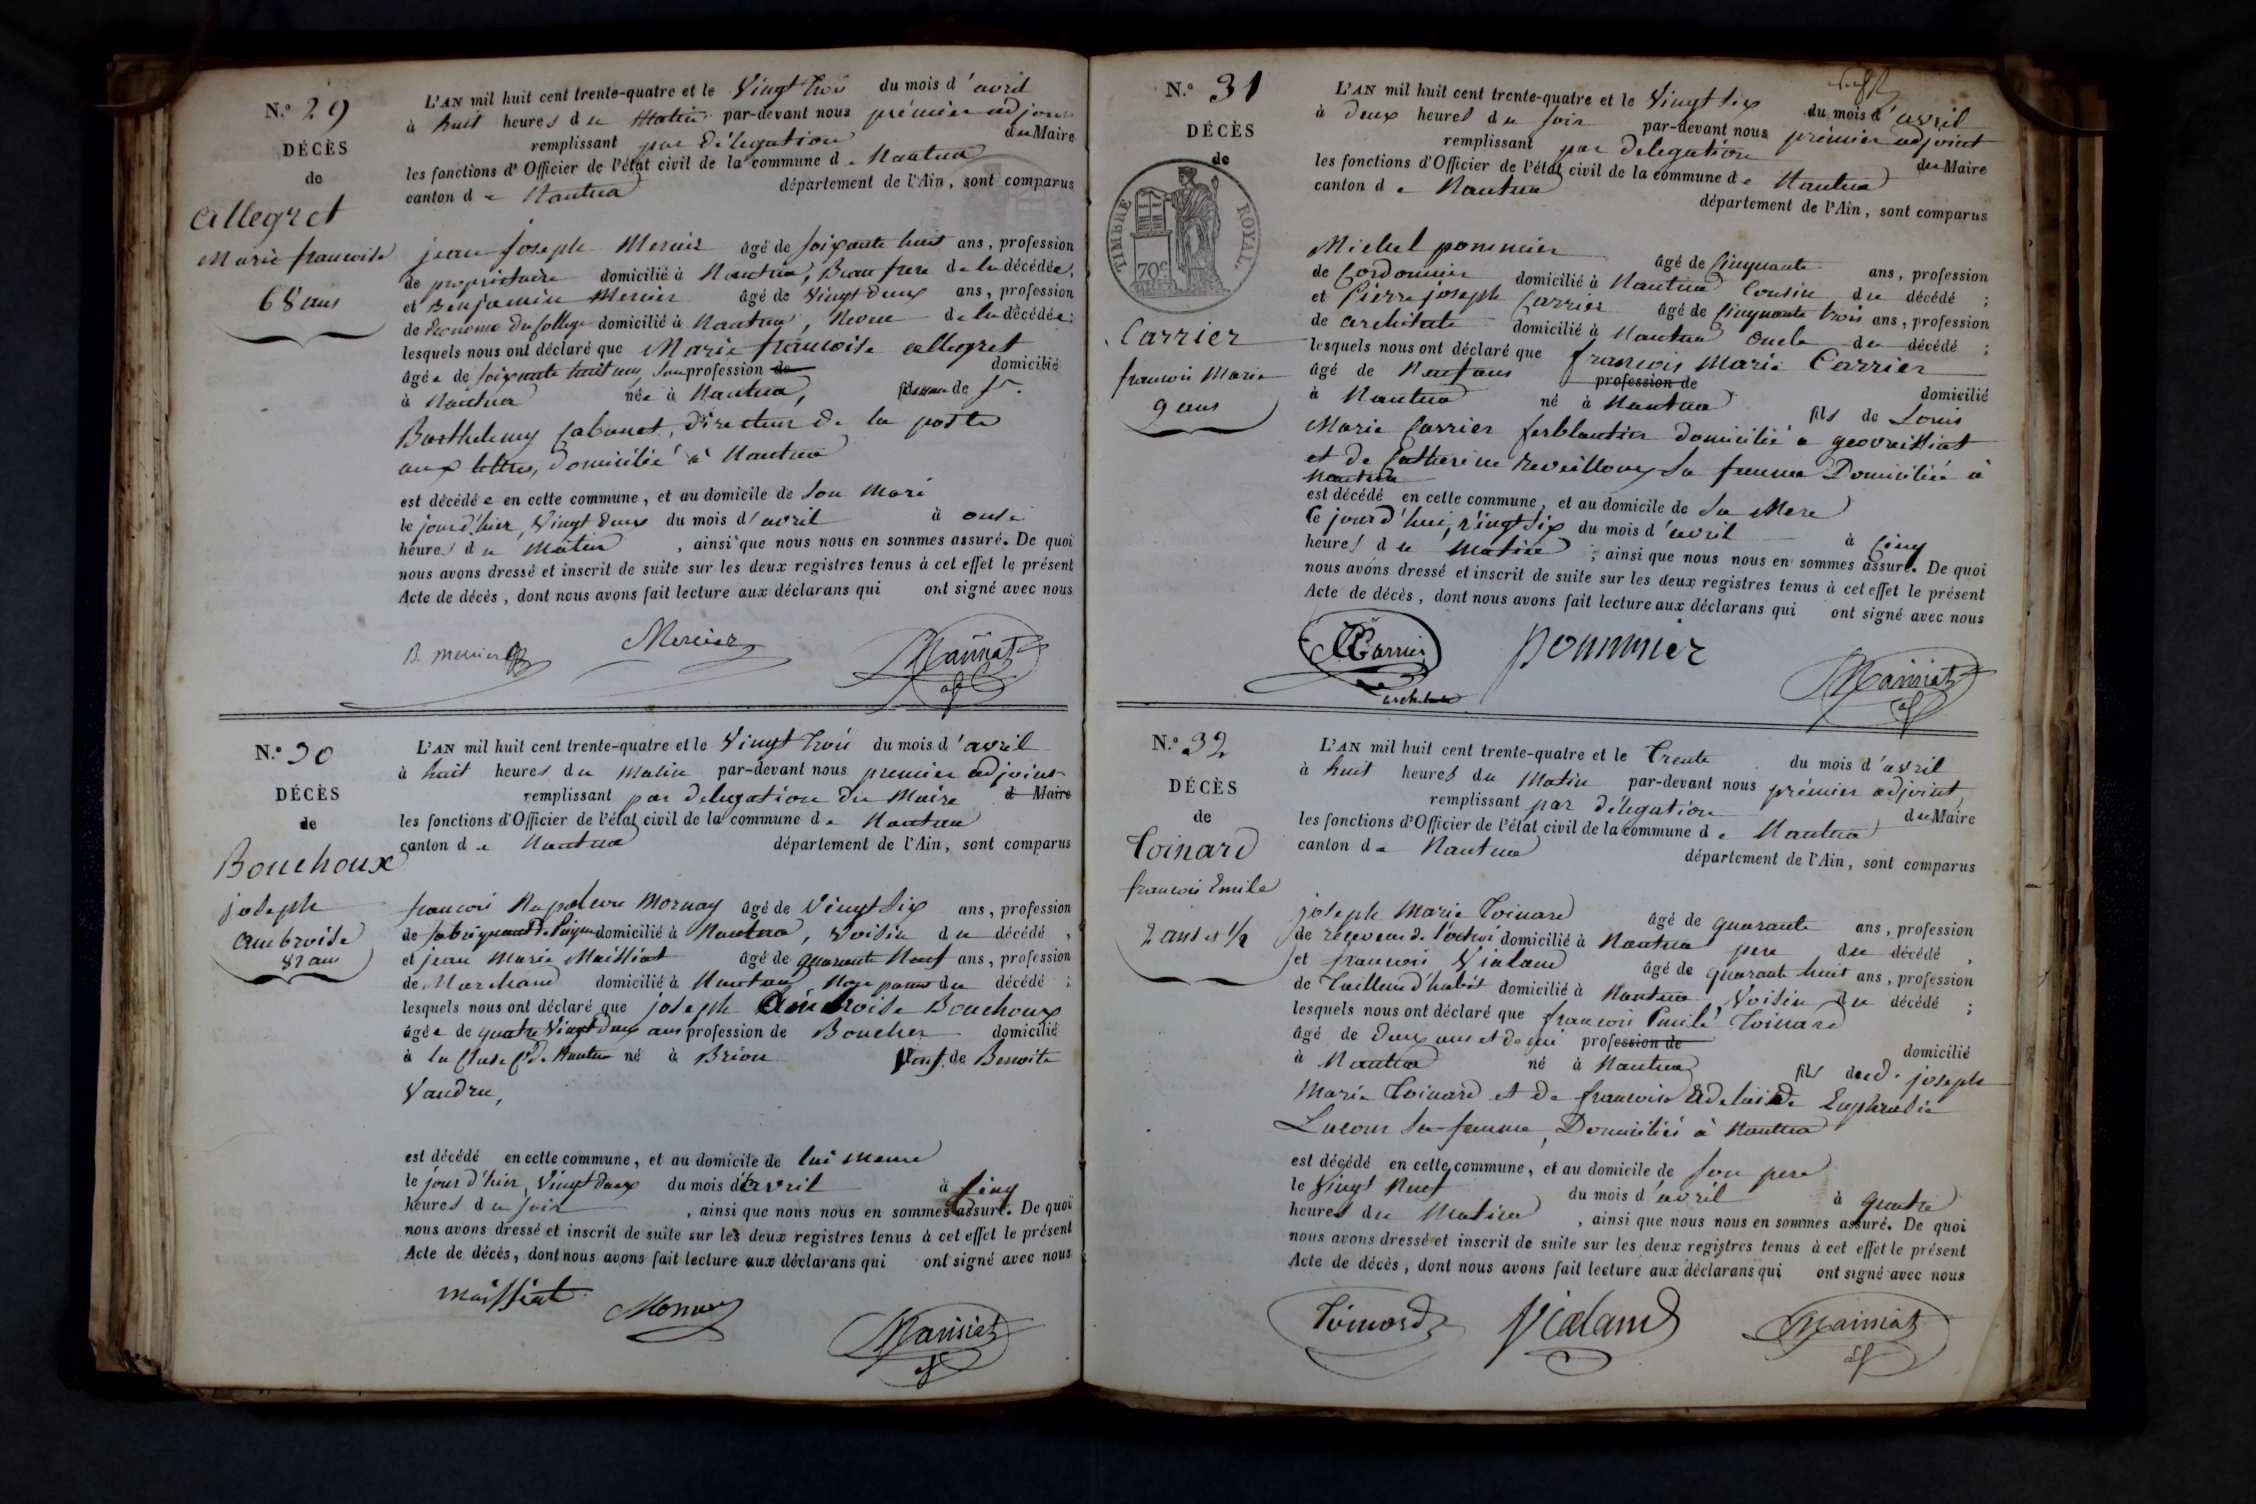 N.o 29
DÉCÈS
de
Allegret
Marie françoise
68 ans
L'AN mil huit cent trente-quatre et le Vingt trois du mois d'avril
à huit heures du Matin par-devant nous prémier adjoint
remplissant par délégation du Maire
les fonctions d'Officier de l'état civil de la commune de Nantua
canton de Nantua département de l'Ain, sont comparus
jean joseph Mercier âgé de soixante huit ans, profession
de propriétaire domicilié à Nantua, Beau frere de la décédée,
et Benjamin Mercier âgé de Vingt deux ans, profession
de Econome du College domicilié à Nantua, Neveu de la décédée;
lesquels nous ont déclaré que Marie françoise allegret
âgée de soixante huit ans, sans profession de domicilié
à Nantua née à Nantua, de Sr.
Barthelemy Cabanet, Directeur de la poste
aux lettres, domicilié à Nantua
est décédée en cette commune, et au domicile de son Mari
le jour d'hier, Vingt deux du mois d'avril à onze
heures du Matin, ainsi que nous nous en sommes assuré. De quoi
nous avons dressé et inscrit de suite sur les deux registres tenus à cet effet le présent
Acte de décès, dont nous avons fait lecture aux déclarans qui ont signé avec nous
B. Mercier Mercier Mainiat
adj
N.o 30
DÉCÈS
de
Bouchoux
joseph
ambroise
82 ans
L'AN mil huit cent trente-quatre et le Vingt trois du mois d'avril
à huit heures du Matin par-devant nous premier adjoint
remplissant par delegation du Maire d Maire
les fonctions d'Officier de l'état civil de la commune de Nantua
canton de Nantua département de l'Ain, sont comparus
françois Napoleon Mornay âgé de Vingt six ans, profession
de fabriquant de Peignes domicilié à Nantua, voisin du décédé,
et jean Marie Maissiat âgé de quarante Neuf ans, profession
de Marchand domicilié à Nantua Non parent du décédé;
lesquels nous ont déclaré que joseph Ambroise Bouchoux
âgée de quatre Vingt deux ans profession de Boucher domicilié
à la Cluse Cne de Nantua né à Brion Veuf de Benoite
Vaudru,
est décédé en cette commune, et au domicile de lui meme
le jour d'hier, Vingt deux du mois d'avril à Cinq
heures du soir, ainsi que nous nous en sommes assuré. De quoi
nous avons dressé et inscrit de suite sur les deux registres tenus à cet effet le présent
Acte de décès, dont nous avons fait lecture aux déclarans qui ont signé avec nous
maissiat Mornay Mainiat
adj
N.o 31
DÉCÈS
de
TIMBRE ROYAL.
70c
Carrier
françois Marie
9 ans
L'AN mil huit cent trente-quatre et le Vingt six du mois d'avril
à deux heures du soir par-devant nous prémier adjoint
remplissant par delegation du Maire
les fonctions d'Officier de l'état civil de la commune de Nantua
canton de Nantua département de l'Ain, sont comparus
Michel pommier âgé de Cinquante ans, profession
de Cordonnier domicilié à Nantua Cousin du décédé;
et Pierre joseph Carrier âgé de Cinquante trois ans, profession
de architecte domicilié à Nantua Oncle du décédé;
lesquels nous ont déclaré que françois Marie Carrier
âgé de Neuf ans profession de domicilié
à Nantua né à Nantua fils de Louis
Marie Carrier ferblantier domicilié a geovreissiat
et de Catherine Reveilloux sa femme Domiciliée à
Nantua
est décédé en cette commune, et au domicile de Sa Mere
le jour d'hui, vingt six du mois d'avril à Cinq
heures du Matin; ainsi que nous nous en sommes assuré. De quoi
nous avons dressé et inscrit de suite sur les deux registres tenus à cet effet le présent
Acte de décès, dont nous avons fait lecture aux déclarans qui ont signé avec nous
Carrier pommier Mainiat
architecte adj
N.o 32
DÉCÈS
de
Toinard
françois Emile
2 ans et 1/2
L'AN mil huit cent trente-quatre et le Trente du mois d'avril
à huit heures du Matin par-devant nous prémier adjoint
remplissant par délégation du Maire
les fonctions d'Officier de l'état civil de la commune de Nantua
canton de Nantua département de l'Ain, sont comparus
joseph Marie Toinard âgé de quarante ans, profession
de receveur de l'octroi domicilié à Nantua pere du décédé,
et francois Vialand âgé de quarante huit ans, profession
de Tailleur d'habit domicilié à Nantua Voisin du décédé;
lesquels nous ont déclaré que françois Emile Toinard
âgé de deux ans et demi profession de domicilié
à Nantua né à Nantua fils de joseph
Marie Toinard et de françoise Adelaide Euphrasie
Lacour sa femme, Domiciliés à Nantua
est décédé en cette commune, et au domicile de son pere
le Vingt Neuf du mois d'avril à quatre
heures du Matin, ainsi que nous nous en sommes assuré. De quoi
nous avons dressé et inscrit de suite sur les deux registres tenus à cet effet le présent
Acte de décès, dont nous avons fait lecture aux déclarans qui ont signé avec nous
Toinard Vialand Mainiat
adj